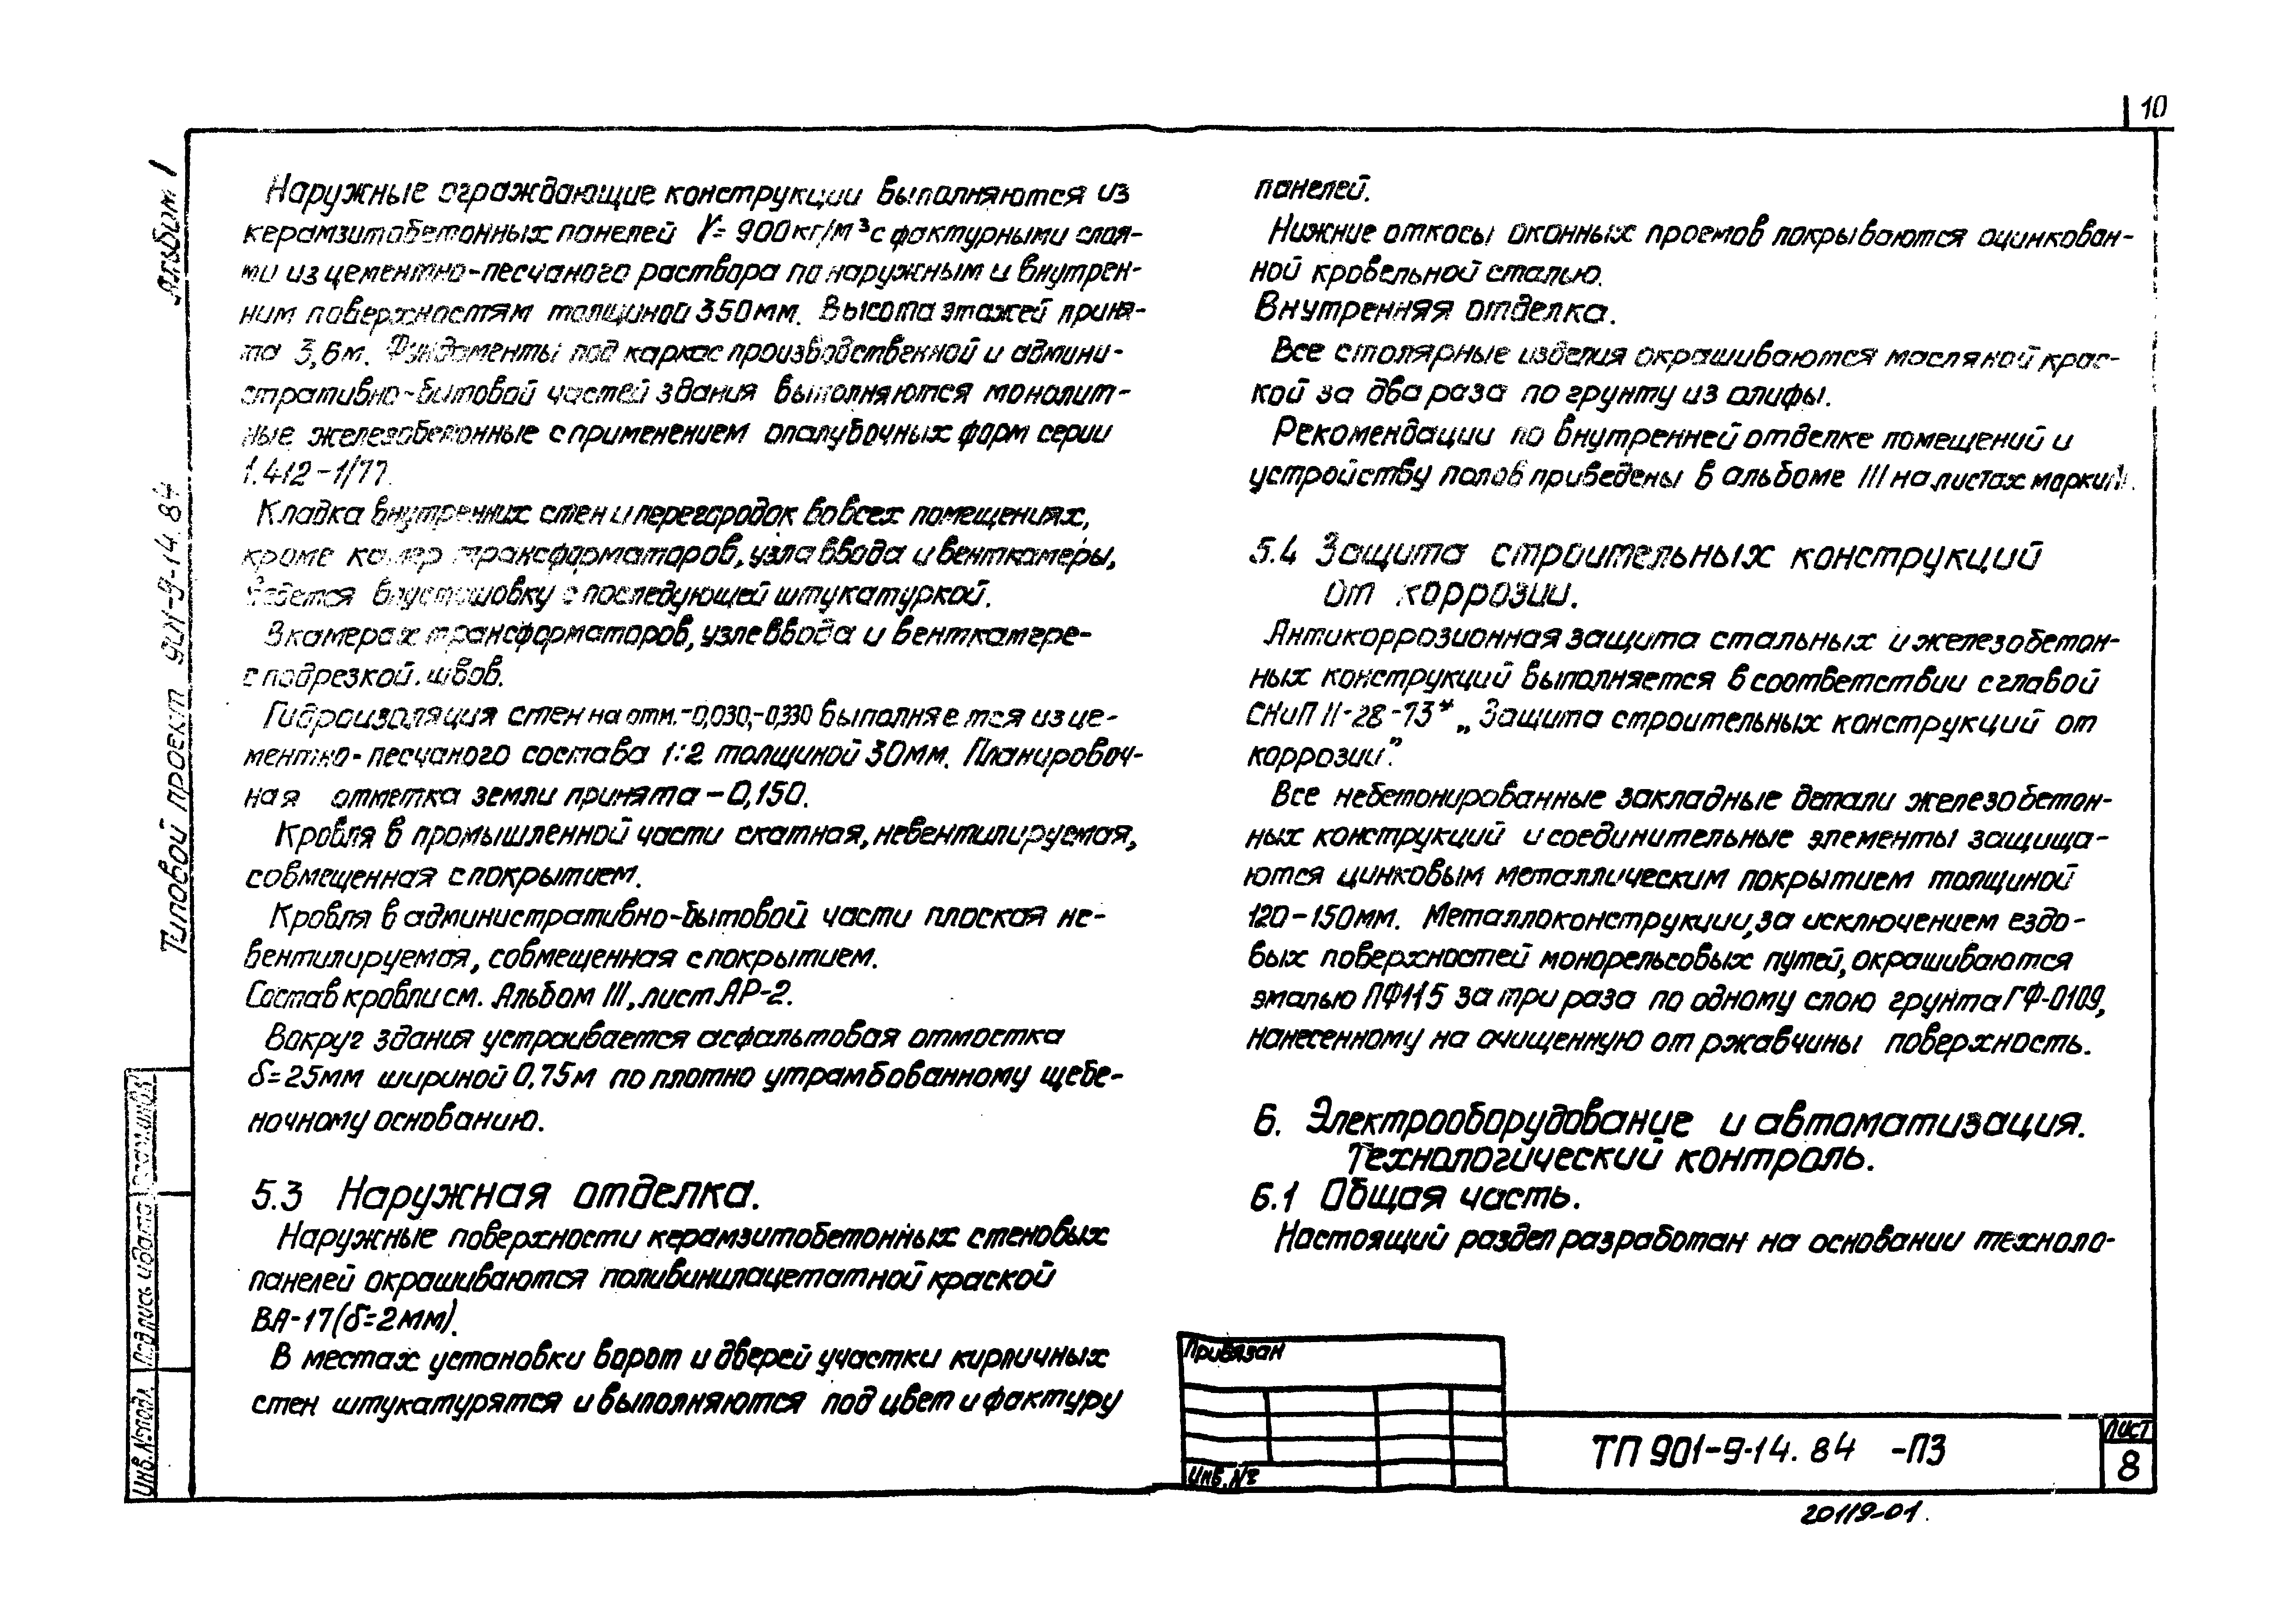 10
Альбом I
Типовой проект 901-9-14.84
Наружные ограждающие конструкции выполняются из
керамзитобетонных панелей γ= 900кг/м³ с фактурными слоя-
ми из цементно-песчаного раствора по наружным и внутрен-
ним поверхностям толщиной 350мм. Высота этажей приня-
та 3,6м. Фундаменты под каркас производственной и админи-
стративно-бытовой частей здания выполняются монолит-
ные железобетонные с применением опалубочных форм серии
1.412-1/77.
Кладка внутренних стен и перегородок во всех помещениях,
кроме камер трансформаторов, узла ввода и венткамеры,
ведется впустошовку с последующей штукатуркой.
В камерах трансформаторов, узле ввода и венткамере-
с подрезкой швов.
Гидроизоляция стен на отм.-0,030,-0,330 выполняется из це-
ментно-песчаного состава 1:2 толщиной 30мм. Планировоч-
ная отметка земли принята -0,150.
Кровля в промышленной части скатная, невентилируемая,
совмещенная с покрытием.
Кровля в административно-бытовой части плоская не-
вентилируемая, совмещенная с покрытием.
Состав кровли см. Альбом III, лист АР-2.
Вокруг здания устраивается асфальтовая отмостка
δ=25мм шириной 0,75м по плотно утрамбованному щебе-
ночному основанию.
5.3 Наружная отделка.
Наружные поверхности керамзитобетонных стеновых
панелей окрашиваются поливинилацетатной краской
ВА-17(δ=2мм).
В местах установки ворот и дверей участки кирпичных
стен штукатурятся и выполняются под цвет и фактуру
панелей.
Нижние откосы оконных проемов покрываются оцинкован-
ной кровельной сталью.
Внутренняя отделка.
Все столярные изделия окрашиваются масляной крас-
кой за два раза по грунту из олифы.
Рекомендации по внутренней отделке помещений и
устройству полов приведены в альбоме III на листах марки
5.4 Защита строительных конструкций
от коррозии.
Антикоррозионная защита стальных и железобетон-
ных конструкций выполняется в соответствии с главой
СНиП II-28-73* „Защита строительных конструкций от
коррозии".
Все небетонированные закладные детали железобетон-
ных конструкций и соединительные элементы защища-
ются цинковым металлическим покрытием толщиной
120-150мм. Металлоконструкции, за исключением ездо-
вых поверхностей монорельсовых путей, окрашиваются
эмалью ПФ115 за три раза по одному слою грунта ГФ-0109,
нанесенному на очищенную от ржавчины поверхность.
6. Электрооборудование и автоматизация.
Технологический контроль.
6.1 Общая часть.
Настоящий раздел разработан на основании техноло-
Привязан
Инв.№
ТП 901-9-14.84 -ПЗ
Лист
8
20119-01
Инв.№подл.
Подпись и дата
Взам.инв.№